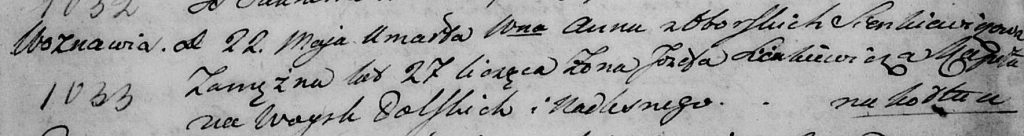 1032
Woznawia. d. 22. Maja Umarła Wna Anna z Oborskich Sienkiewiczowa
1033 Zamężna lat 27 licząca Żona Józefa Sienkiewicza
na Woysk Polskich i Nadlesnego. . na kołtun